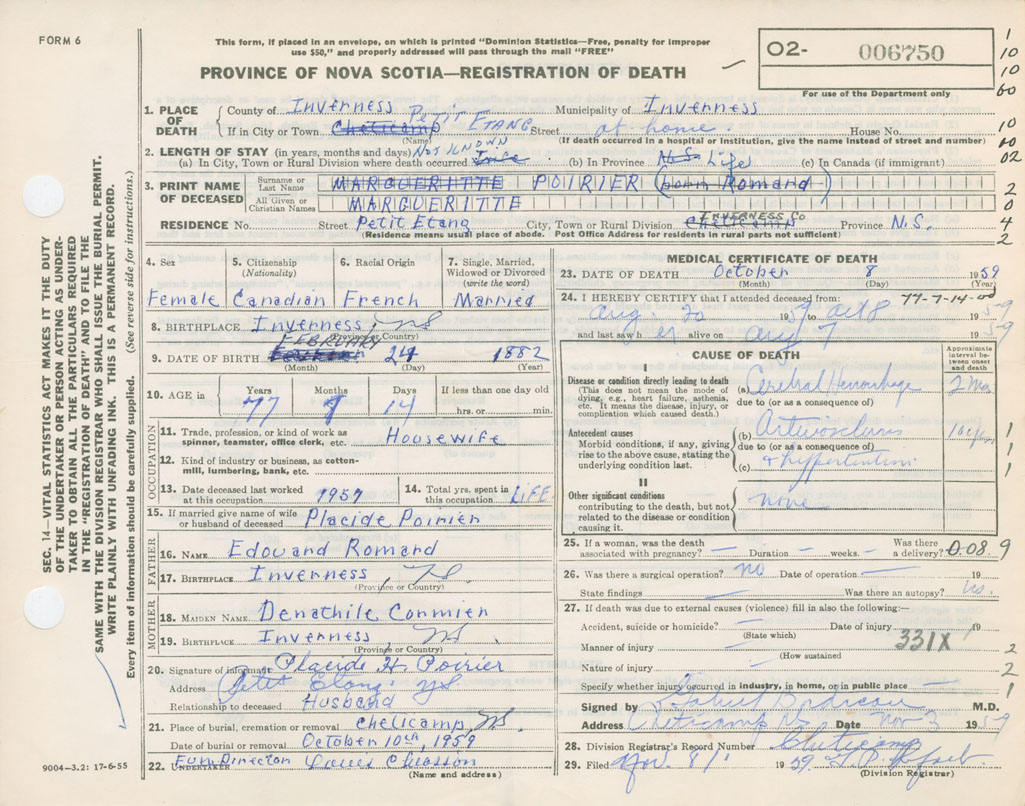 FORM 6
This form, if placed in an envelope, on which is printed "Dominion Statistics—Free, penalty for improper
use $50," and properly addressed will pass through the mail "FREE"
PROVINCE OF NOVA SCOTIA—REGISTRATION OF DEATH
O2- 006750
For use of the Department only
1
10
10
60
10
02
2
0
4
2
SEC. 14—VITAL STATISTICS ACT MAKES IT THE DUTY
OF THE UNDERTAKER OR PERSON ACTING AS UNDER-
TAKER TO OBTAIN ALL THE PARTICULARS REQUIRED
IN THE "REGISTRATION OF DEATH" AND TO FILE THE
SAME WITH THE DIVISION REGISTRAR WHO SHALL ISSUE THE BURIAL PERMIT.
WRITE PLAINLY WITH UNFADING INK. THIS IS A PERMANENT RECORD.
Every item of information should be carefully supplied. (See reverse side for instructions.)
1. PLACE OF DEATH
County of Inverness Municipality of Inverness
Petit Etang
If in City or Town Cheticamp Street at home. House No.
(Name) (If death occurred in a hospital or institution, give the name instead of street and number)
2. LENGTH OF STAY (in years, months and days) Not Known
(a) In City, Town or Rural Division where death occurred (b) In Province N.S. Life (c) In Canada (if immigrant)
3. PRINT NAME OF DECEASED
Surname or Last Name MARGUERITTE POIRIER (born Romard)
All Given or Christian Names MARGUERITTE
Inverness Co
RESIDENCE No. Street Petit Etang City, Town or Rural Division Cheticamp Province N.S.
(Residence means usual place of abode. Post Office Address for residents in rural parts not sufficient)
4. Sex Female
5. Citizenship (Nationality) Canadian
6. Racial Origin French
7. Single, Married, Widowed or Divorced (write the word) Married
8. BIRTHPLACE Inverness, NS
(Province or Country)
February
9. DATE OF BIRTH 24 1882
(Month) (Day) (Year)
10. AGE in Years Months Days If less than one day old
77 7 14 hrs. or min.
OCCUPATION
11. Trade, profession, or kind of work as
spinner, teamster, office clerk, etc. Housewife
12. Kind of industry or business, as cotton-
mill, lumbering, bank, etc.
13. Date deceased last worked
at this occupation 1957
14. Total yrs. spent in
this occupation Life
15. If married give name of wife
or husband of deceased Placide Poirier
FATHER
16. NAME Edouard Romard
17. BIRTHPLACE Inverness, NS
(Province or Country)
MOTHER
18. MAIDEN NAME Denathile Cormier
19. BIRTHPLACE Inverness, NS
(Province or Country)
20. Signature of informant Placide H Poirier
Address Petit Etang NS.
Relationship to deceased Husband
21. Place of burial, cremation or removal Cheticamp, NS
Date of burial or removal October 10th, 1959
Fun Director
22. UNDERTAKER Chiasson
(Name and address)
9004—3.2: 17-6-55
MEDICAL CERTIFICATE OF DEATH
23. DATE OF DEATH October 8 1959
(Month) (Day) (Year)
24. I HEREBY CERTIFY that I attended deceased from: 77-7-14-00
Aug. 20 1959 to Oct 8 1959
and last saw h er alive on Aug 7 1959
CAUSE OF DEATH
Approximate interval between onset and death
I
Disease or condition directly leading to death
(This does not mean the mode of
dying, e.g., heart failure, asthenia,
etc. It means the disease, injury, or
complication which caused death.)
(a) Cerebral Hemorrhage 2 Mos
due to (or as a consequence of)
Antecedent causes
Morbid conditions, if any, giving
rise to the above cause, stating the
underlying condition last.
(b) Arteriosclerosis
due to (or as a consequence of)
(c) & hypertention
1
1
1
II
Other significant conditions
contributing to the death, but not
related to the disease or condition
causing it.
none
25. If a woman, was the death Was there
associated with pregnancy? — Duration — weeks. — a delivery? 0.08 9
26. Was there a surgical operation? no Date of operation — 19
State findings — Was there an autopsy? no.
27. If death was due to external causes (violence) fill in also the following:—
Accident, suicide or homicide? — Date of injury 19
(State which)
331X
Manner of injury — 2
(How sustained
Nature of injury — 2
Specify whether injury occurred in industry, in home, or in public place — 1
Signed by Gabriel Boudreau M.D.
Address Cheticamp NS Date Nov 3 1959
28. Division Registrar's Record Number Cheticamp
29. Filed Nov. 8 1959
(Division Registrar)